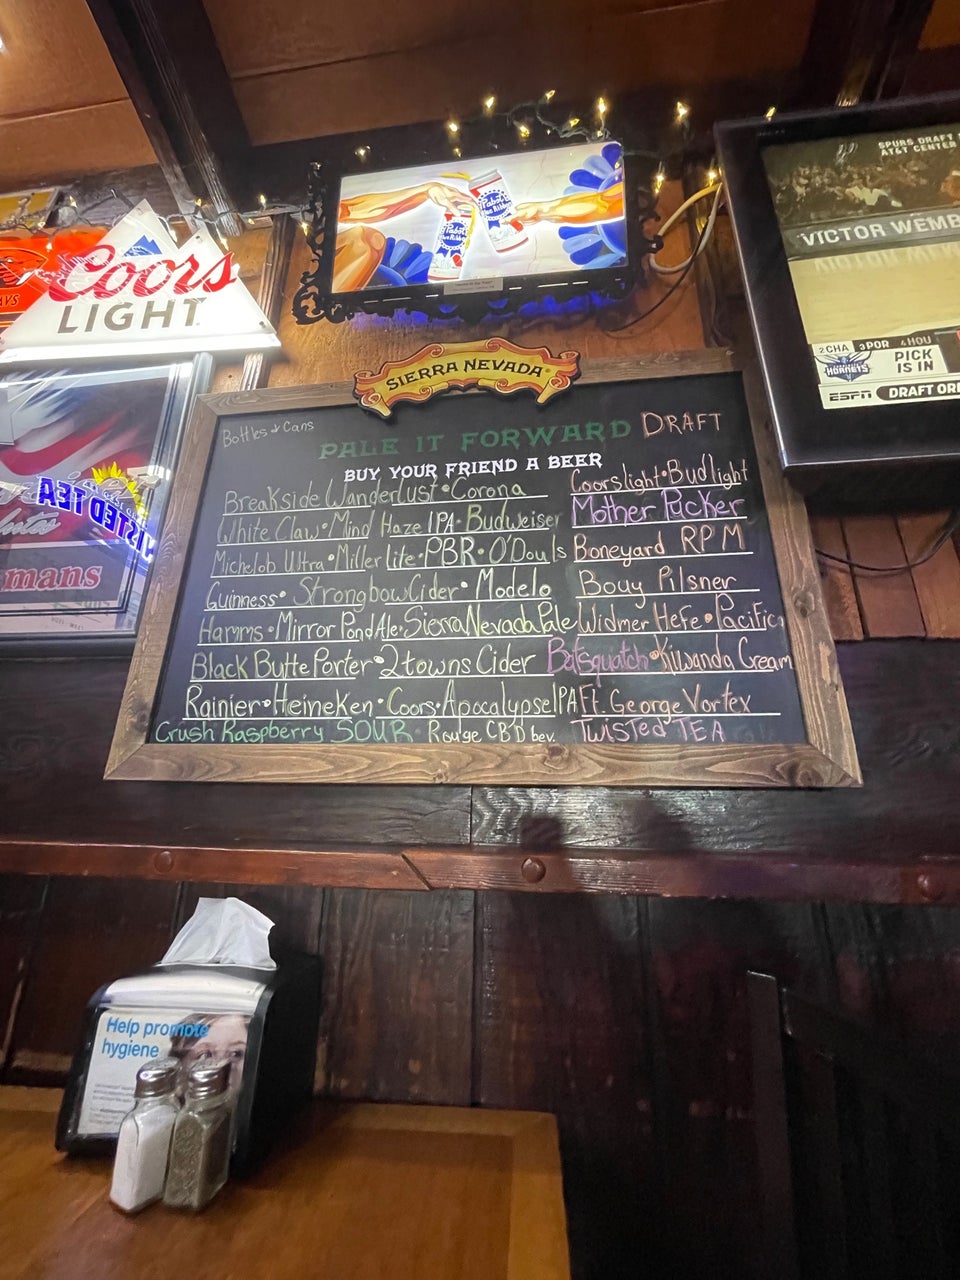 SPURS DRAFT
AT&T CENTER
VICTOR WEMB
2 CHA 3 POR 4 HOU
HORNETS
PICK
IS IN
ESPN DRAFT ORD
Pabst
Blue Ribbon
Pabst
Blue Ribbon
Coors
LIGHT
TWISTED TEA
mans
SIERRA NEVADA
Bottles & Cans
PALE IT FORWARD DRAFT
BUY YOUR FRIEND A BEER
Breakside Wanderlust • Corona
White Claw • Mind Haze IPA • Budweiser
Michelob Ultra • Miller Lite • PBR • O'Douls
Guinness • Strongbow Cider • Modelo
Hamms • Mirror Pond Ale • Sierra Nevada Pale
Black Butte Porter • 2 towns Cider
Rainier • Heineken • Coors • Apocalypse IPA
Crush Raspberry SOUR • Rouge CBD bev.
Coors light • Bud light
Mother Pucker
Boneyard RPM
Bouy Pilsner
Widmer Hefe • Pacific
Batsquatch • Kiwanda Cream
Ft. George Vortex
TWISTED TEA
Help promote
hygiene